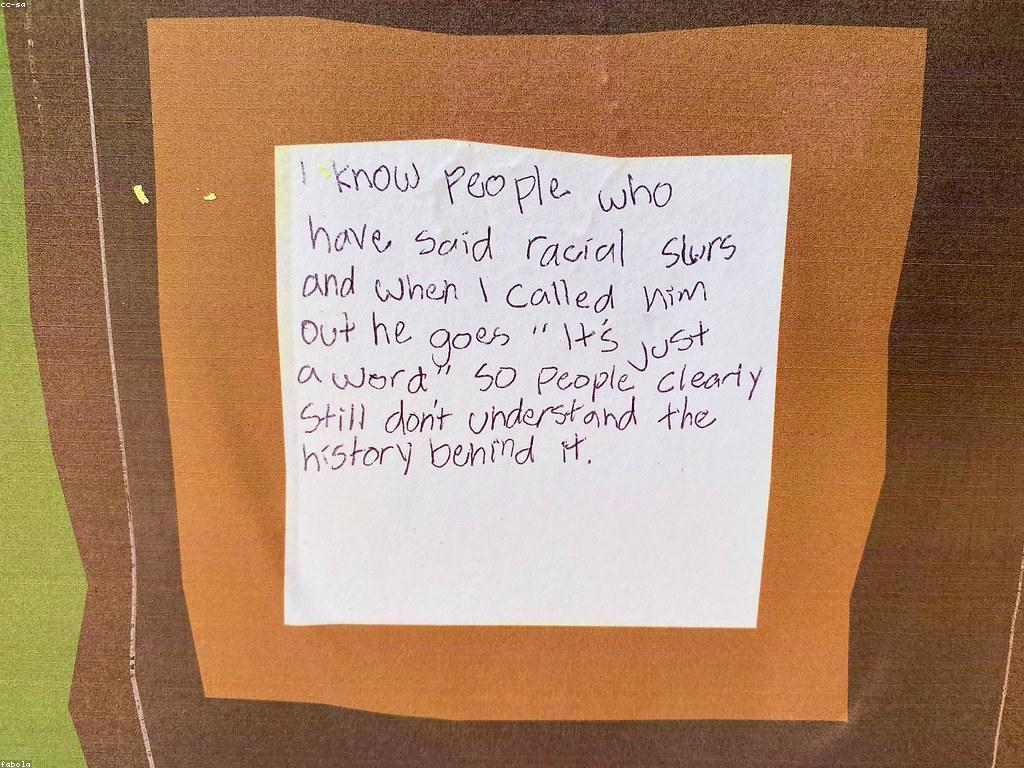 cc-sa
I know people who
have said racial slurs
and when I called him
out he goes "It's just
a word" so people clearly
still don't understand the
history behind it.
fabola